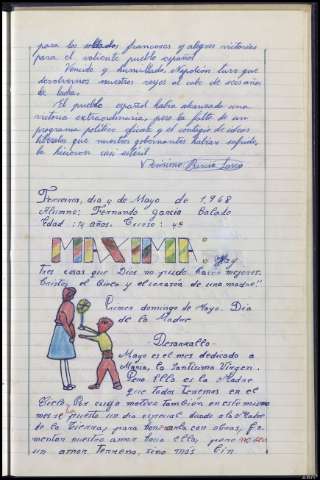 para los soldados franceses y alegres victorias
para el valiente pueblo español.
Vencido y humillado, Napoleón tuvo que
devolvernos nuestros reyes al cabo de seis años
de lucha.
El pueblo español había alcanzado una
victoria extraordinaria, pero la falta de un
programa político eficaz y el contagio de ideas
liberales que nuestros gobernantes habían sufrido,
la hicieron casi estéril.
García
día 4 de Mayo de 1.968
Alumno: Fernando García
Edad: 14 años. Curso: 4º
MAXIMA:
Tres cosas que Dios no puede hacer mejores:
Cristo, el Cielo y el corazón de una madre!!
Primer domingo de Mayo. Día
de la Madre
- Desarrollo -
Mayo es el mes dedicado a
María, la Santísima Virgen.
Pero Ella es la Madre
que todos tenemos en el
Cielo. Por cuyo motivo también en este mismo
mes se puesto un día especial dedo a la Madre
de la Tierra, para honrarla con obras, fo-
mentar nuestro amor hacia ella, pero no sea
un amor terreno, sino más bien